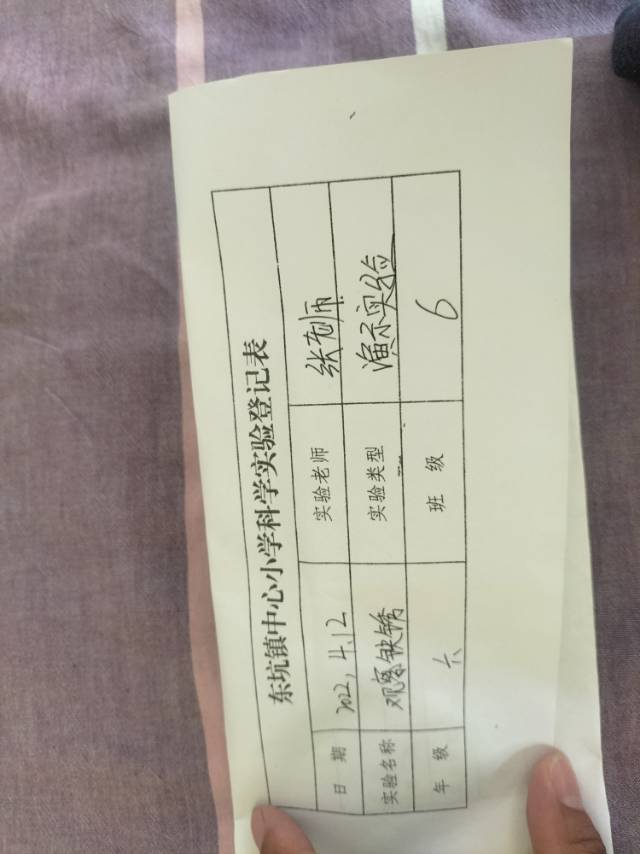 东坑镇中心小学科学实验登记表
日 期 2022.4.12 实验老师 张老师
实验名称 观察铁锈 实验类型 演示实验
年 级 六 班 级 6